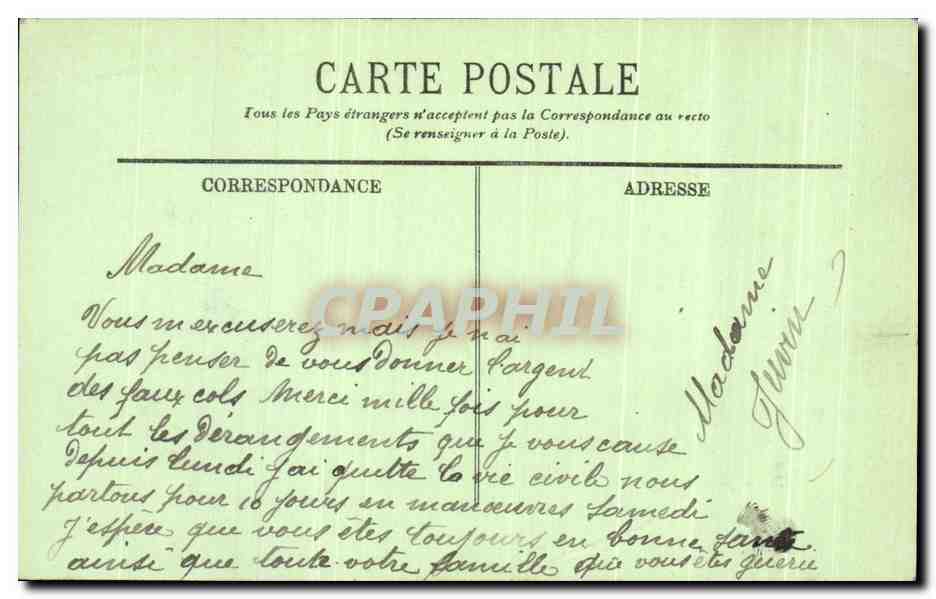 CARTE POSTALE
Tous les Pays étrangers n'acceptent pas la Correspondance au recto
(Se renseigner à la Poste).
CORRESPONDANCE
ADRESSE
Madame
Vous mexcuserez mais je n'ai
pas penser de vous donner l'argent
des faux cols Merci mille fois pour
tout les dérangements que je vous cause
depuis lundi j'ai quitte la vie civile nous
partons pour 10 jours en manœuvres Samedi
J'espère que vous êtes toujours en bonne santé
ainsi que toute votre famille que vous êtes guéru
Madame
CPAPHIL